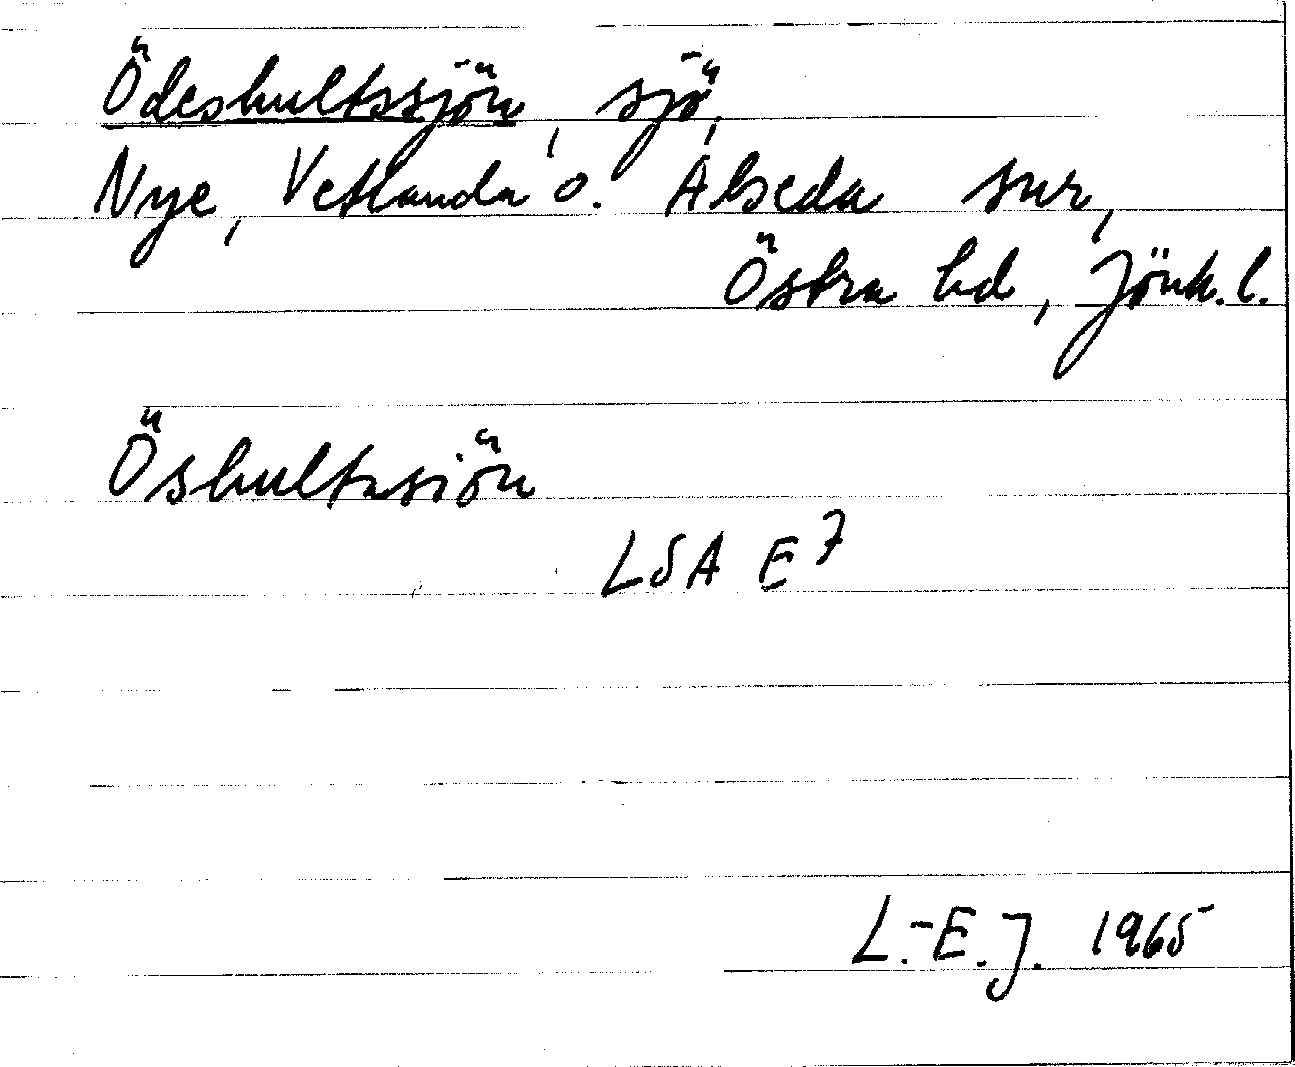 Ödeshultssjön, sjö,
Nye, Vetlanda o. Alseda snr,
Östra hd, Jönk. l.
Öshultasiön
LSA E7
L.-E.J. 1965